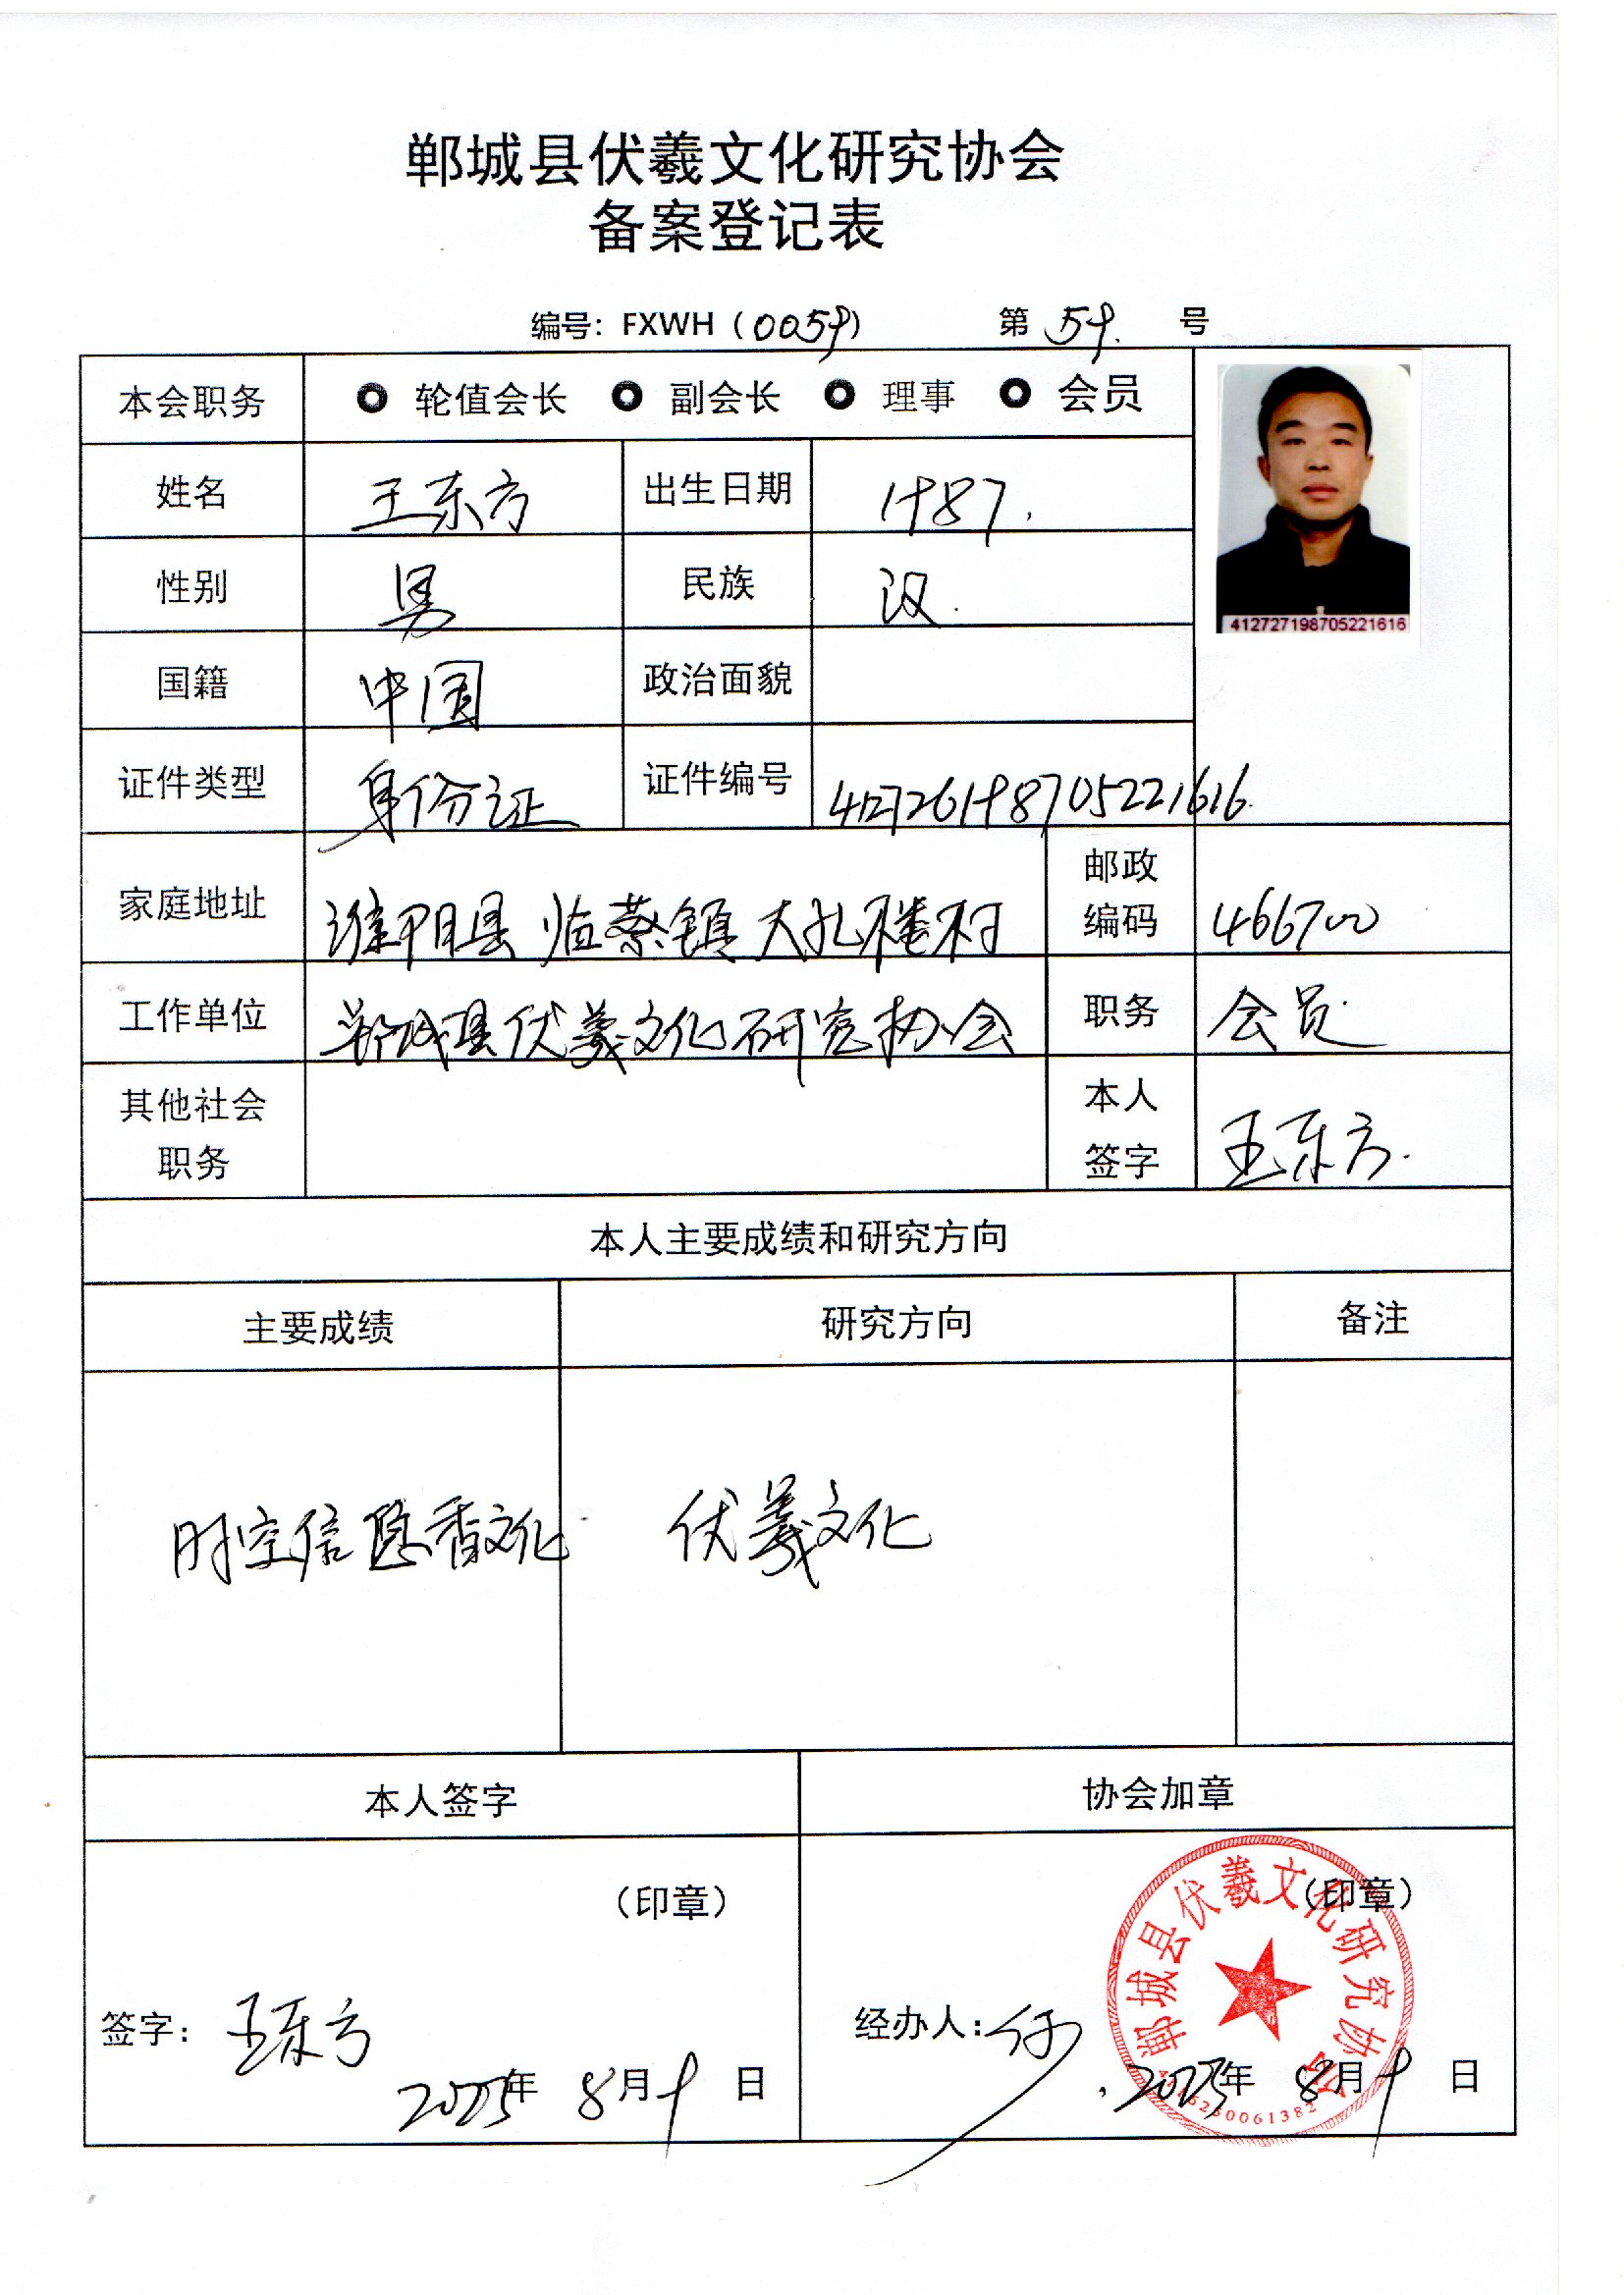 郸城县伏羲文化研究协会
备案登记表
编号：FXWH（0059） 第 59. 号
本会职务 轮值会长 副会长 理事 会员
姓名 王东方 出生日期 1987.
412727198705221616
性别 男 民族 汉.
国籍 中国 政治面貌
证件类型 身份证 证件编号 412726198705221616.
家庭地址 淮阳县临蔡镇大孔楼村 邮政编码 466700
工作单位 郸城县伏羲文化研究协会 职务 会员.
其他社会职务 本人签字 王东方.
本人主要成绩和研究方向
主要成绩 研究方向 备注
时空信息香文化 伏羲文化
本人签字 协会加章
（印章） （印章）
郸城县伏羲文化研究协会
签字：王东方 经办人：
2025年 8月9日 2025年 8月9日